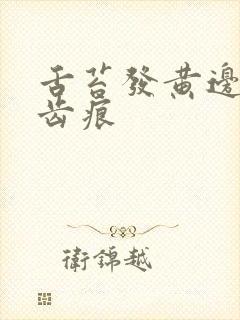 舌苔發黄邊
齿痕
衛錦越